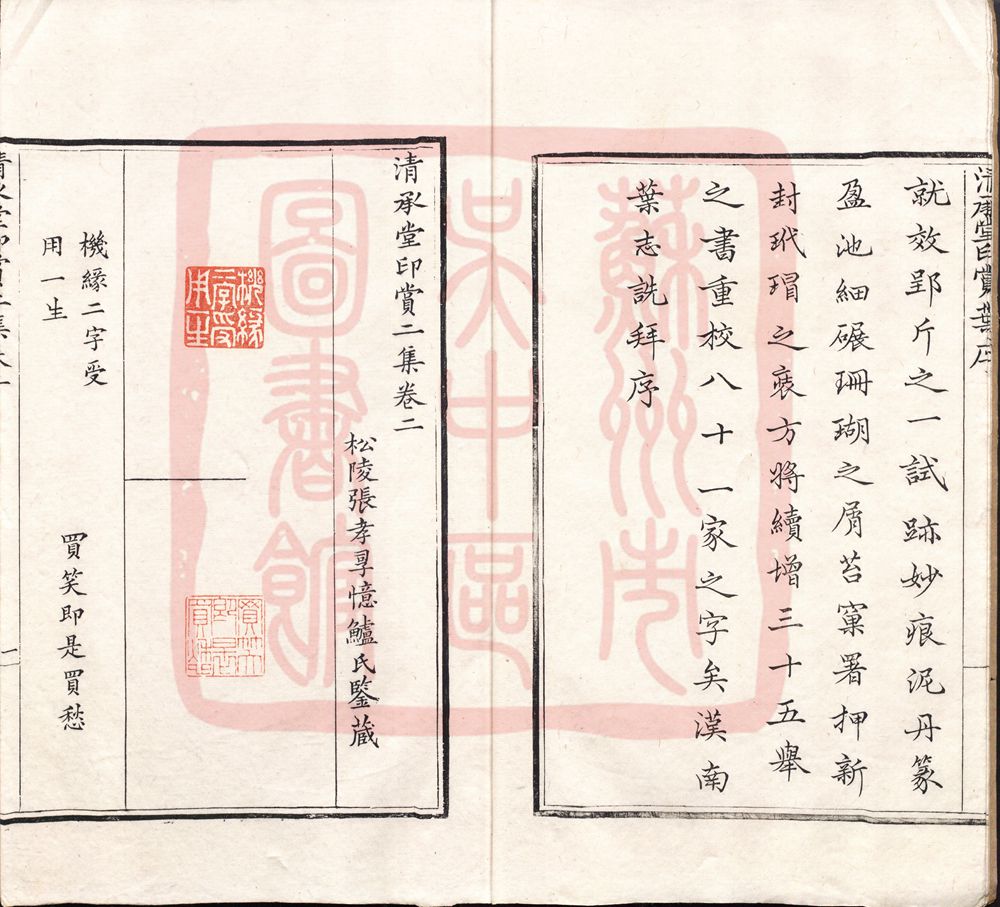 清承堂印賞葉序
就效郢斤之一試跡妙痕泥丹篆
盈池細碾珊瑚之屑苔窠署押新
封玳瑁之裝方將續增三十五舉
之書重校八十一家之字矣漢南
葉志詵拜序
清承堂印賞二集卷二
松陵張孝㝵憶鱸氏鑒藏
機緣二字受用一生
機緣二字受
用一生
買笑即是買愁
買笑即是買愁
清承堂印賞二集卷二
一
蘇州市吳中區圖書館